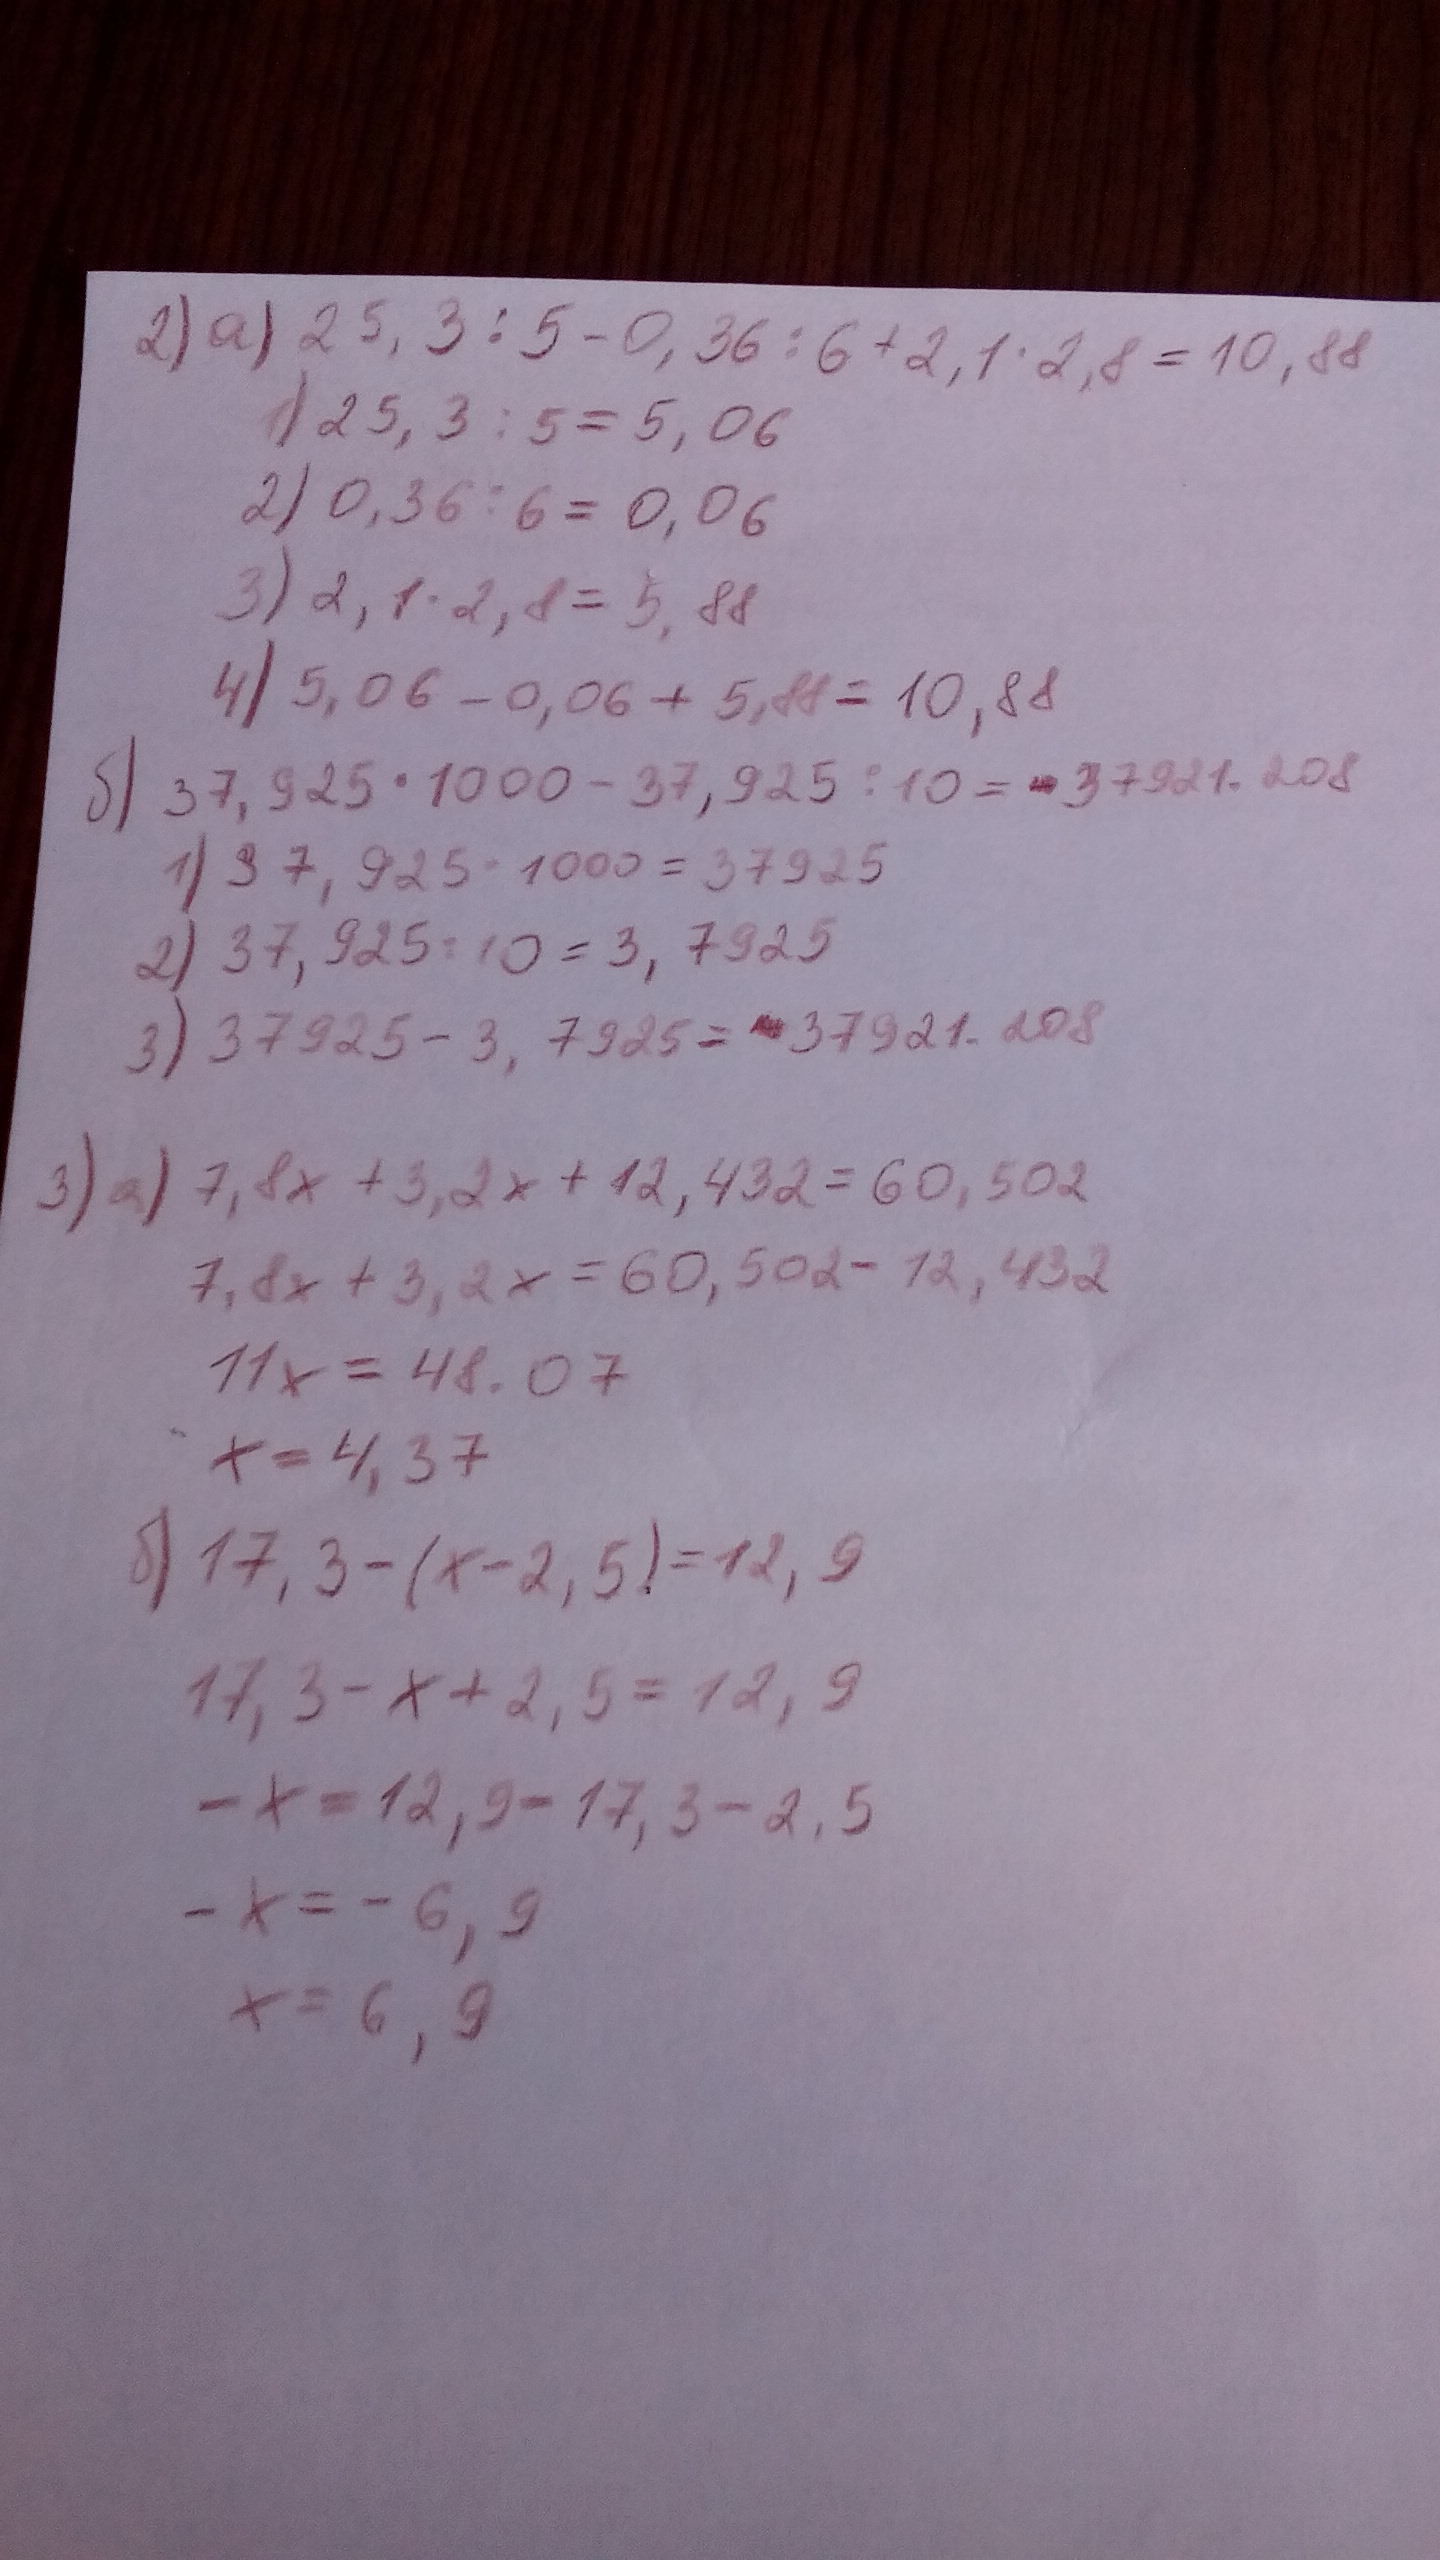 2) а) 25,3 : 5 - 0,36 : 6 + 2,1 · 2,8 = 10,88
1) 25,3 : 5 = 5,06
2) 0,36 : 6 = 0,06
3) 2,1 · 2,8 = 5,88
4) 5,06 - 0,06 + 5,88 = 10,88
б) 37,925 · 1000 - 37,925 : 10 = 37921.208
1) 37,925 · 1000 = 37925
2) 37,925 : 10 = 3,7925
3) 37925 - 3,7925 = 37921.208
3) а) 7,8x + 3,2x + 12,432 = 60,502
7,8x + 3,2x = 60,502 - 12,432
11x = 48.07
x = 4,37
б) 17,3 - (x - 2,5) = 12,9
17,3 - x + 2,5 = 12,9
-x = 12,9 - 17,3 - 2,5
-x = -6,9
x = 6,9